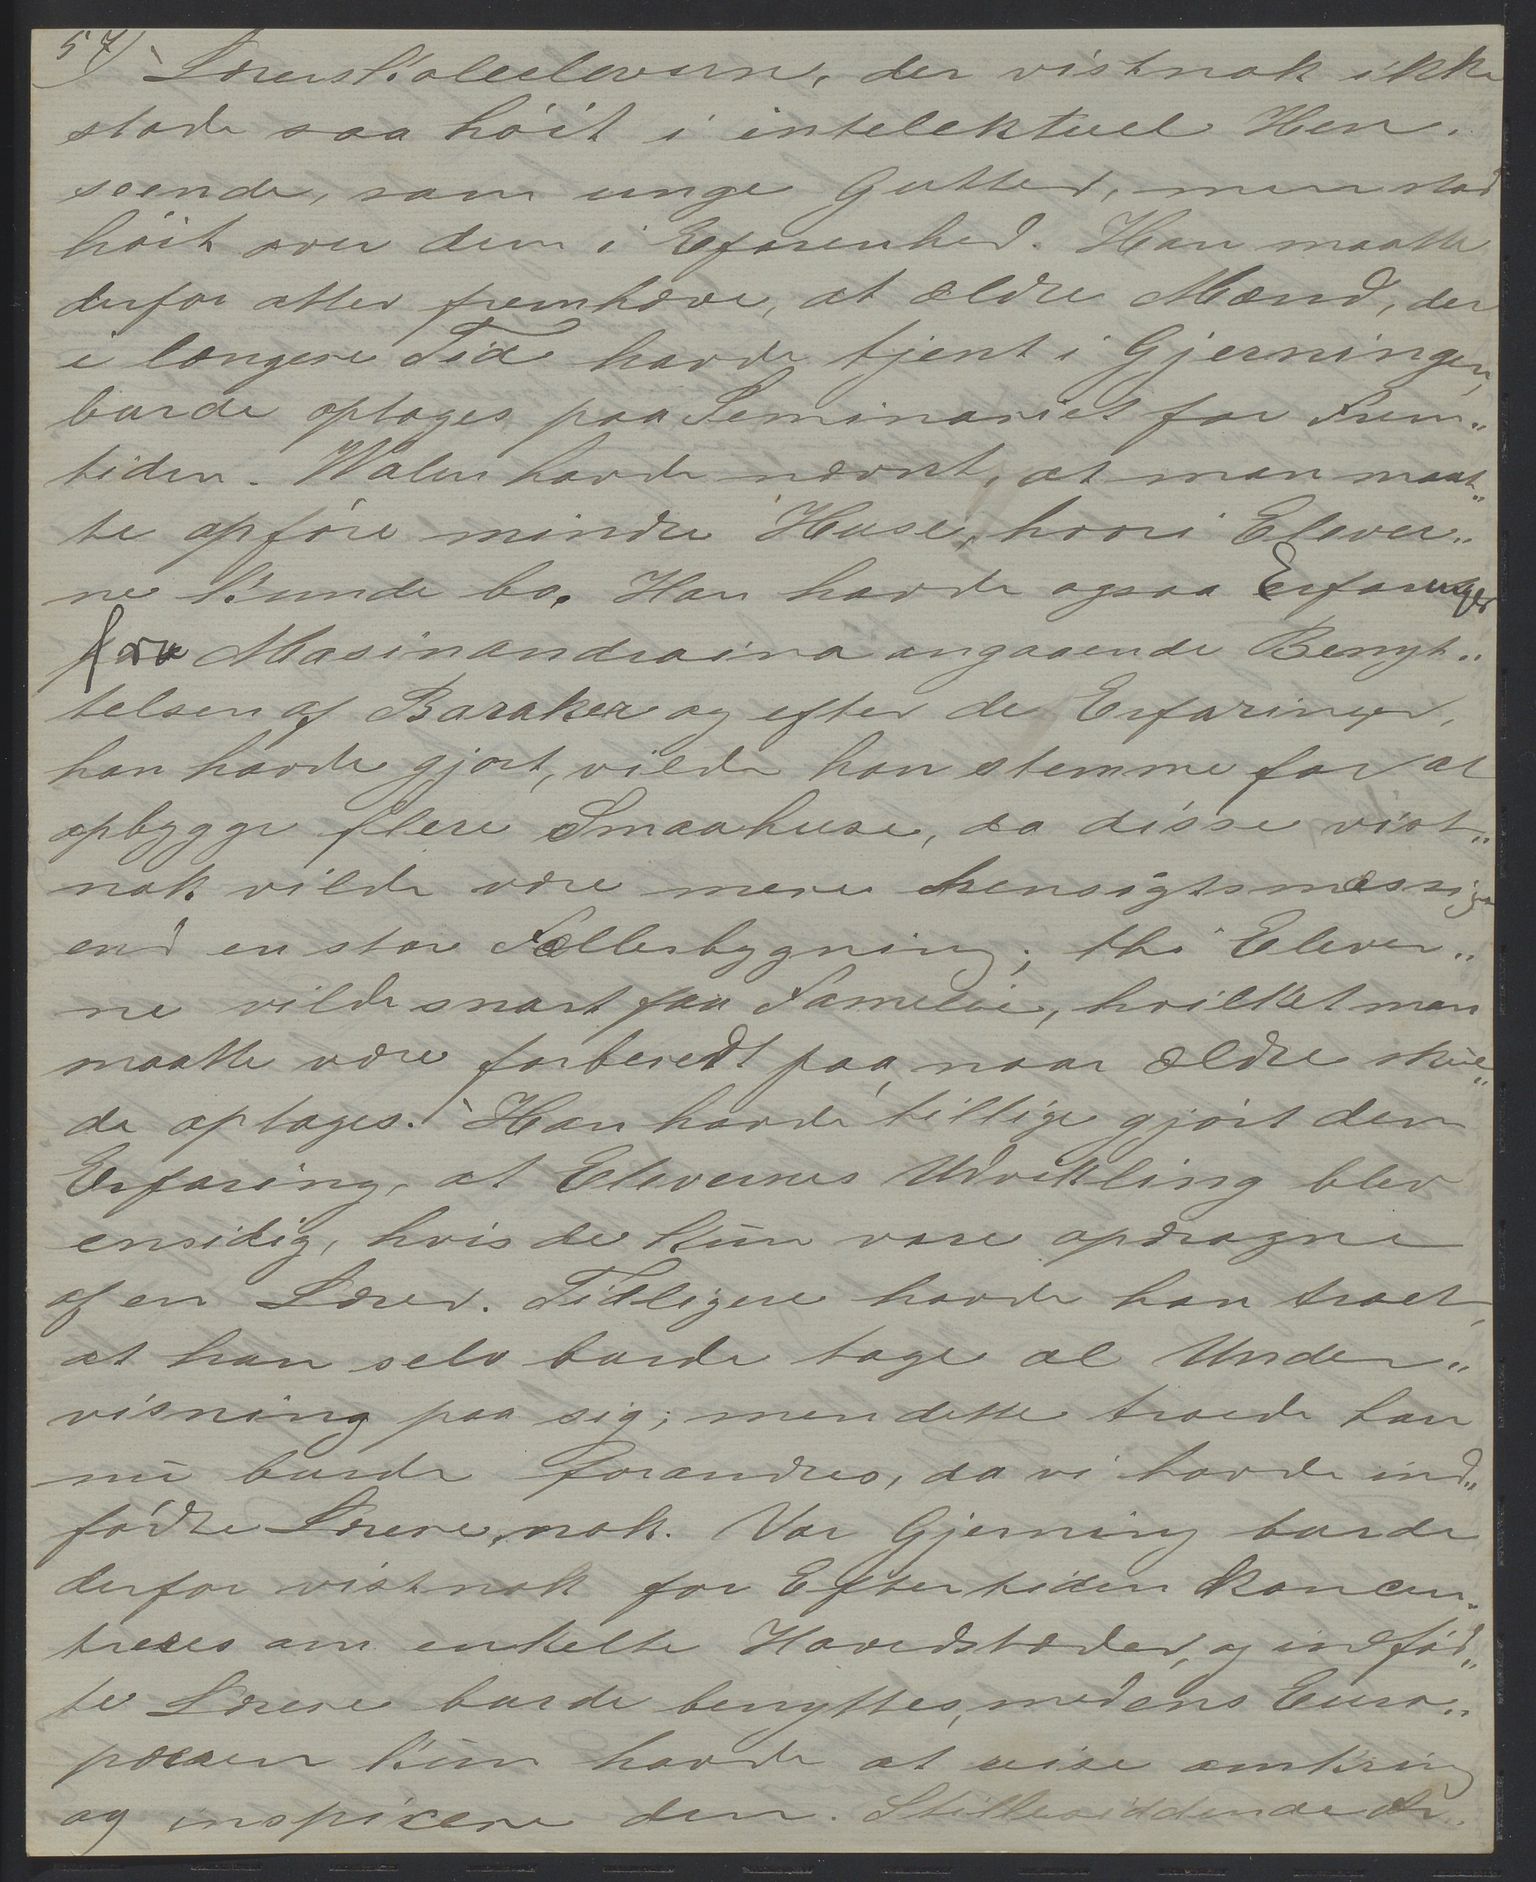 57)
Lærerskoleeleverne, der vistnok ikke
stode saa høit i intelektuel Hen-
seende, som unge Gutter, men stod
høit over dem i Erfarenhed. Han maatte
derfor atter fremhæve, at ældre Mænd, der
i længere Tid havde tjent i Gjerningen,
burde optages paa Seminariet for Frem„
tiden. Walen havde nævnt, at man maat„
te opføre mindre Huse, hvori Elever„
ne kunde bo. Han havde ogsaa Erfaringer
fra Masinandraina angaaende Benyt„
telsen af Barakker og efter de Erfaringer,
han havde gjort, vilde han stemme for at
opbygge flere Smaahuse, da disse vist„
nok vilde være mere hensigtsmæssige
end en stor Fællesbygning; thi Elever„
ne vilde snart faa Familie, hvilket man
maatte være forberedt paa, naar ældre skul„
de optages. Han havde tillige gjort den
Erfaring, at Elevernes Udvikling blev
ensidig, hvis de kun vare opdragne
af en Lærer. Tidligere havde han troet,
at han selv burde tage al Under„
visning paa sig; men dette troede han
nu burde forandres, da vi havde ind„
fødte Lærere nok. Vor Gjerning burde
derfor vistnok for Eftertiden koncen„
treres om enkelte Hovedstæder, og indfød„
te Lærere burde benyttes, medens Euro„
pæeren kun havde at reise omkring
og inspicere dem. Stillesiddende